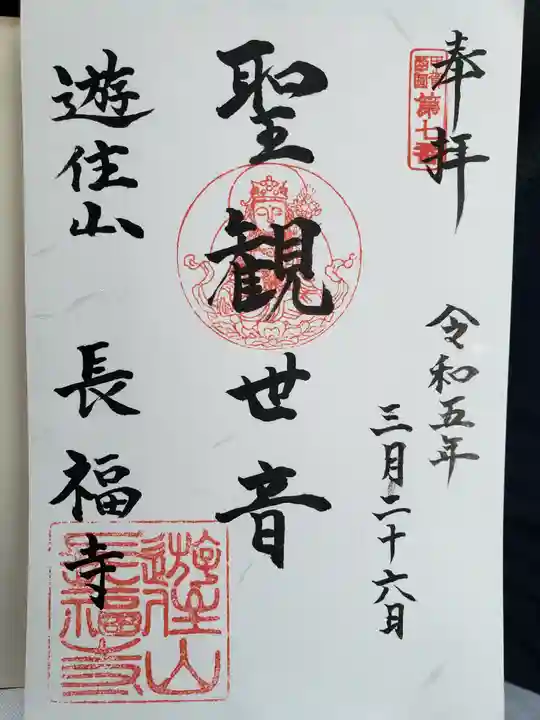 奉拝
第七番
令和五年
三月二十六日
聖観世音
遊住山 長福寺
遊住山
長福寺